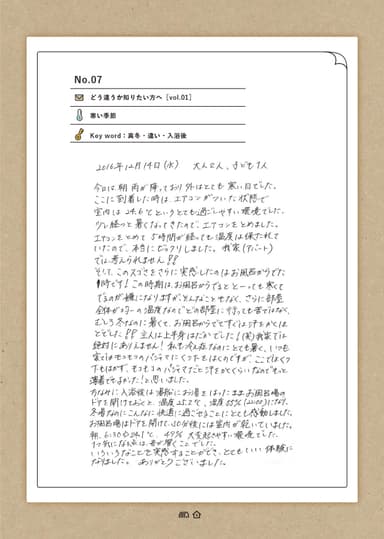 No.07
どう違うか知りたい方へ [vol.01]
寒い季節
Key word:真冬・違い・入浴後
2016年12月14日(水) 大人2人、子ども1人
今日は朝雨が降っており外はとても寒い日でした。
ここに到着した時は、エアコンがついた状態で
室内は24.6℃というとても過ごしやすい環境でした。
少し経つと暑くなってきたので、エアコンをとめました。
エアコンをとめて5時間が経っても温度は保たれて
いたので、本当にビックリしました。我家(アパート)
では考えられません!!
そして、このスゴさをさらに実感したのはお風呂からでた
時です!この時期はお風呂からでるととーっても寒くて
でるのが嫌になりますが、そんなこともなく、さらに部屋
全体が一定の温度なのでどの部屋に行っても寒くはなく、
むしろ冬なのに暑くて、お風呂からでてすぐは汗をかくほ
どでした!!主人は上半身はだかでした!(笑)我家では
絶対にありえません!私も冷え症なのにとても暑く、いつも
家ではモコモコのパジャマにくつ下もはくのですが、ここではくつ
下もはかず、モコモコのパジャマだと汗をかくくらいなのでもっと
薄着でもよかった!と思いました。
ちなみに入浴後は湯船にお湯をはったままお風呂場の
ドアを開けておくと、温度 22℃で、湿度 55%(22:00)になり、
冬場なのにこんなに快適に過ごせることにとても感動しました。
お風呂場はドアを開けて、30分後には室内が乾いていました。
朝、6:30で24.1℃、49%と起きやすい環境でした。
1つ気になる点は、音が響くことでした。
いろいろなことを実感することができ、とてもいい体験に
なりました。ありがとうございました。